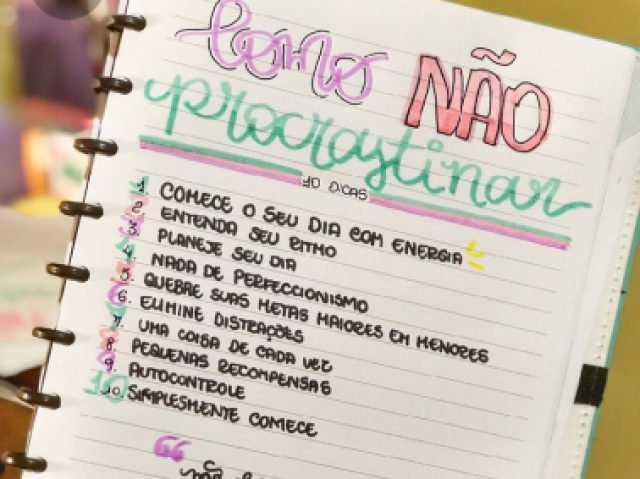 Como NÃO
procrastinar
10 DICAS
1. COMECE O SEU DIA COM ENERGIA
2. ENTENDA SEU RITMO
3. PLANEJE SEU DIA
4. NADA DE PERFECCIONISMO
5. QUEBRE SUAS METAS MAIORES EM MENORES
6. ELIMINE DISTRAÇÕES
7. UMA COISA DE CADA VEZ
8. PEQUENAS RECOMPENSAS
9. AUTOCONTROLE
10. SIMPLESMENTE COMECE
“
não